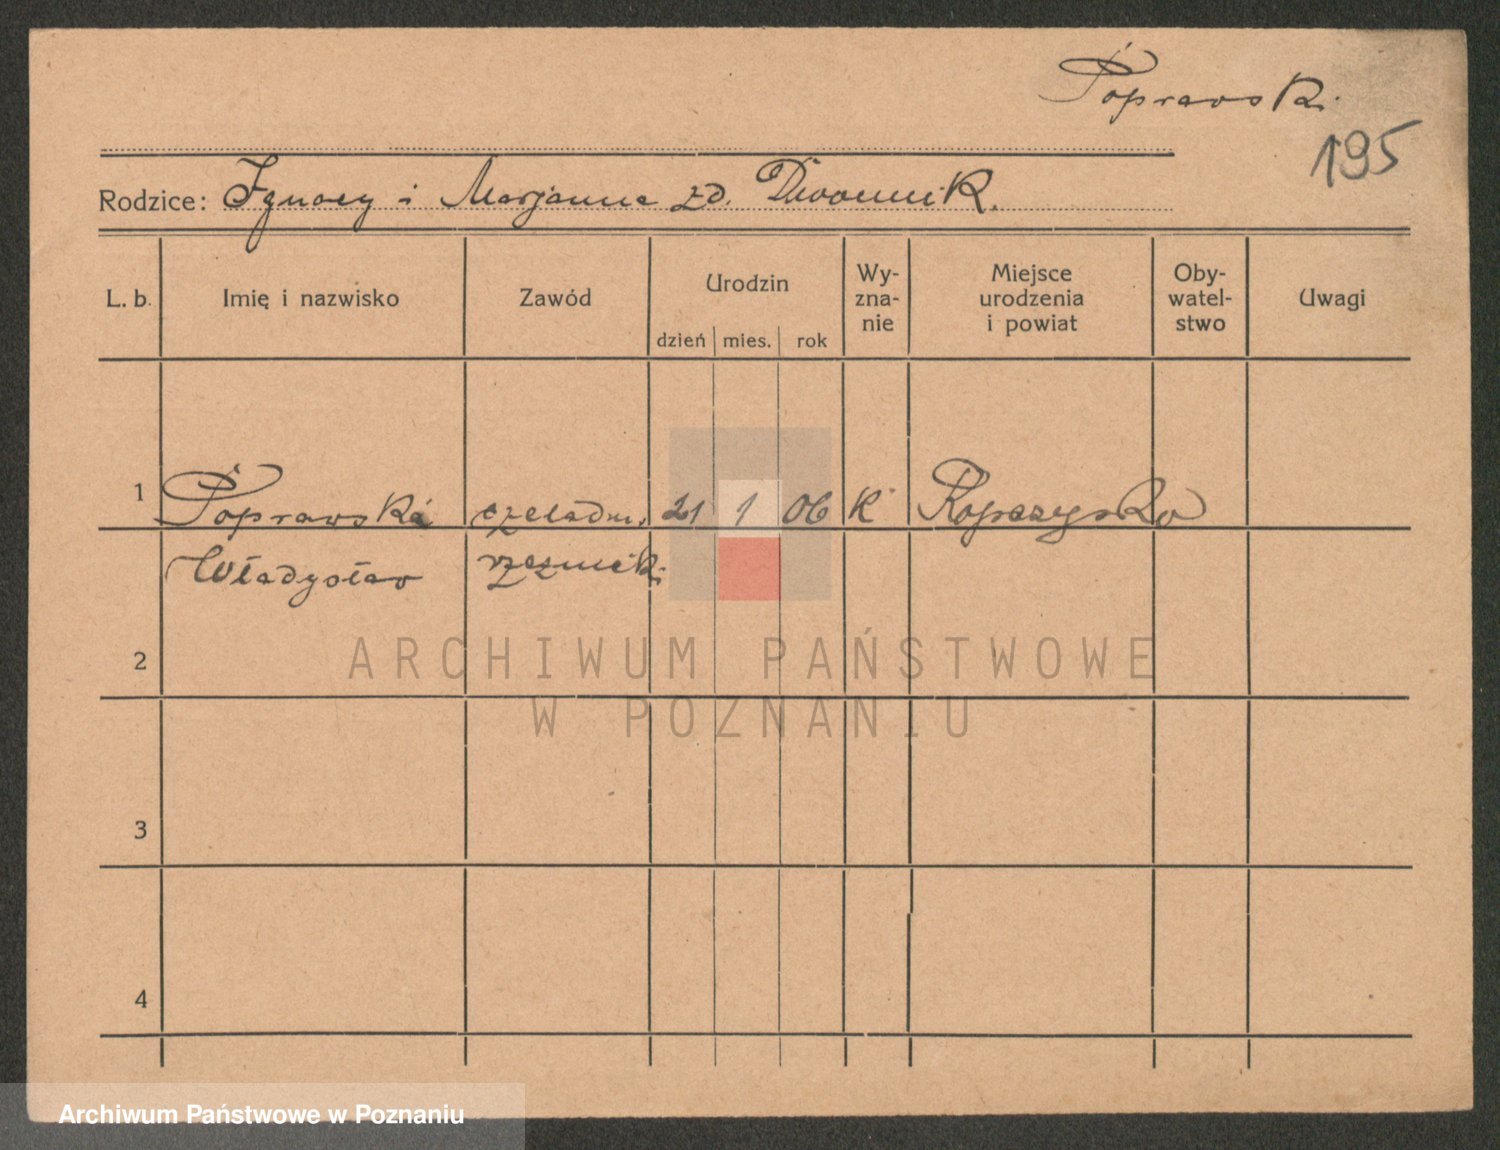 Poprawski
195
Rodzice: Ignacy i Marjanna zd. Dwornik.
L. b. Imię i nazwisko Zawód Urodzin dzień mies. rok Wy-zna-nie Miejsce urodzenia i powiat Oby-watel-stwo Uwagi
1 Poprawski czeladn. 21 1 06 K
Władysław rzeźnicki
2
ARCHIWUM PAŃSTWOWE
W POZNANIU
3
4
Archiwum Państwowe w Poznaniu